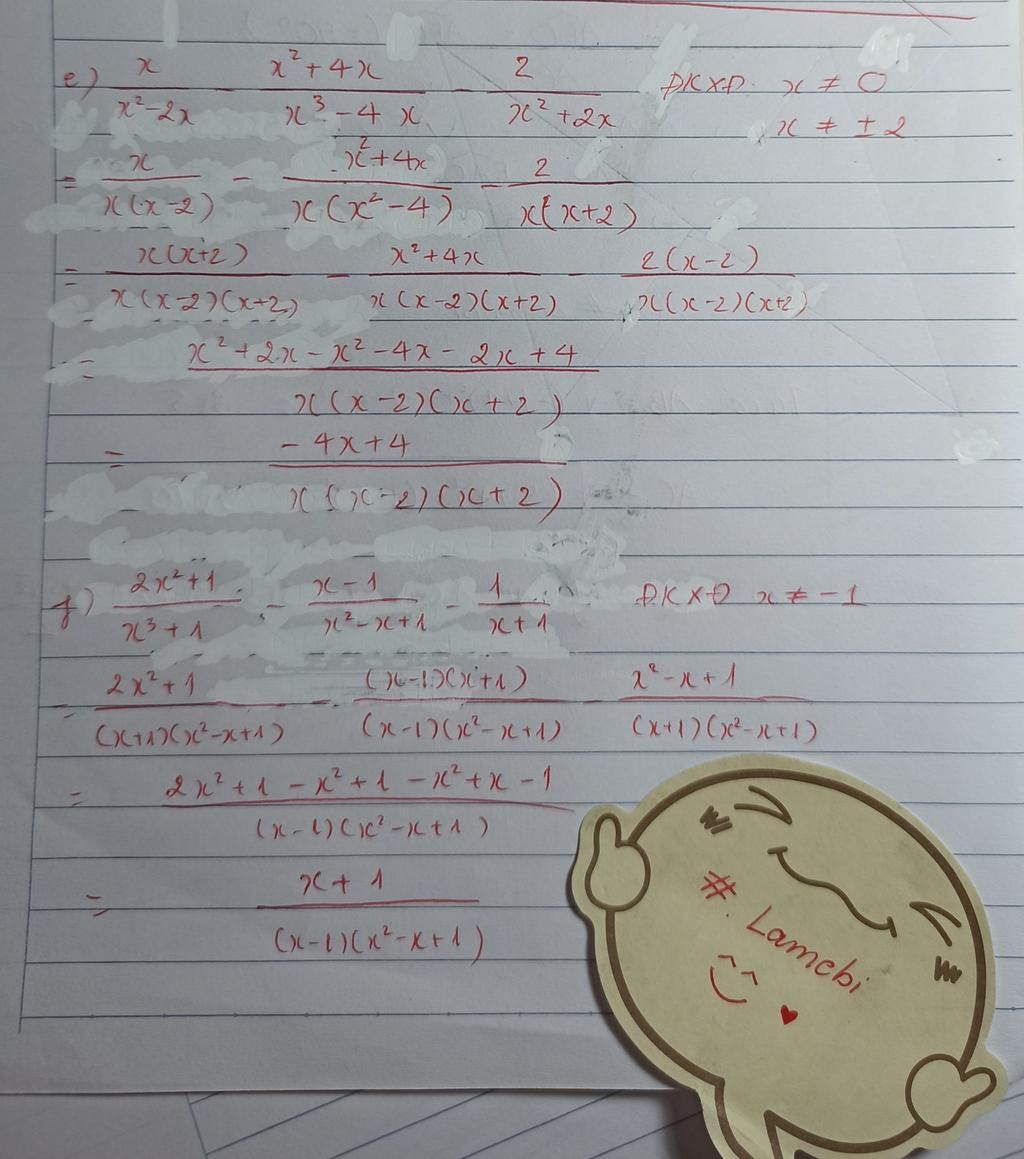 e) x/(x²-2x) - (x²+4x)/(x³-4x) - 2/(x²+2x) ĐKXĐ: x ≠ 0
x ≠ ±2
= x/(x(x-2)) - (x²+4x)/(x(x²-4)) - 2/(x(x+2))
= x(x+2)/(x(x-2)(x+2)) - (x²+4x)/(x(x-2)(x+2)) - 2(x-2)/(x(x-2)(x+2))
= (x²+2x-x²-4x-2x+4)/(x(x-2)(x+2))
= (-4x+4)/(x(x-2)(x+2))
f) (2x²+1)/(x³+1) - (x-1)/(x²-x+1) - 1/(x+1) ĐKXĐ x ≠ -1
= (2x²+1)/((x+1)(x²-x+1)) - (x-1)(x+1)/((x-1)(x²-x+1)) - (x²-x+1)/((x+1)(x²-x+1))
= (2x²+1-x²+1-x²+x-1)/((x-1)(x²-x+1))
= (x+1)/((x-1)(x²-x+1))
#. Lamebi